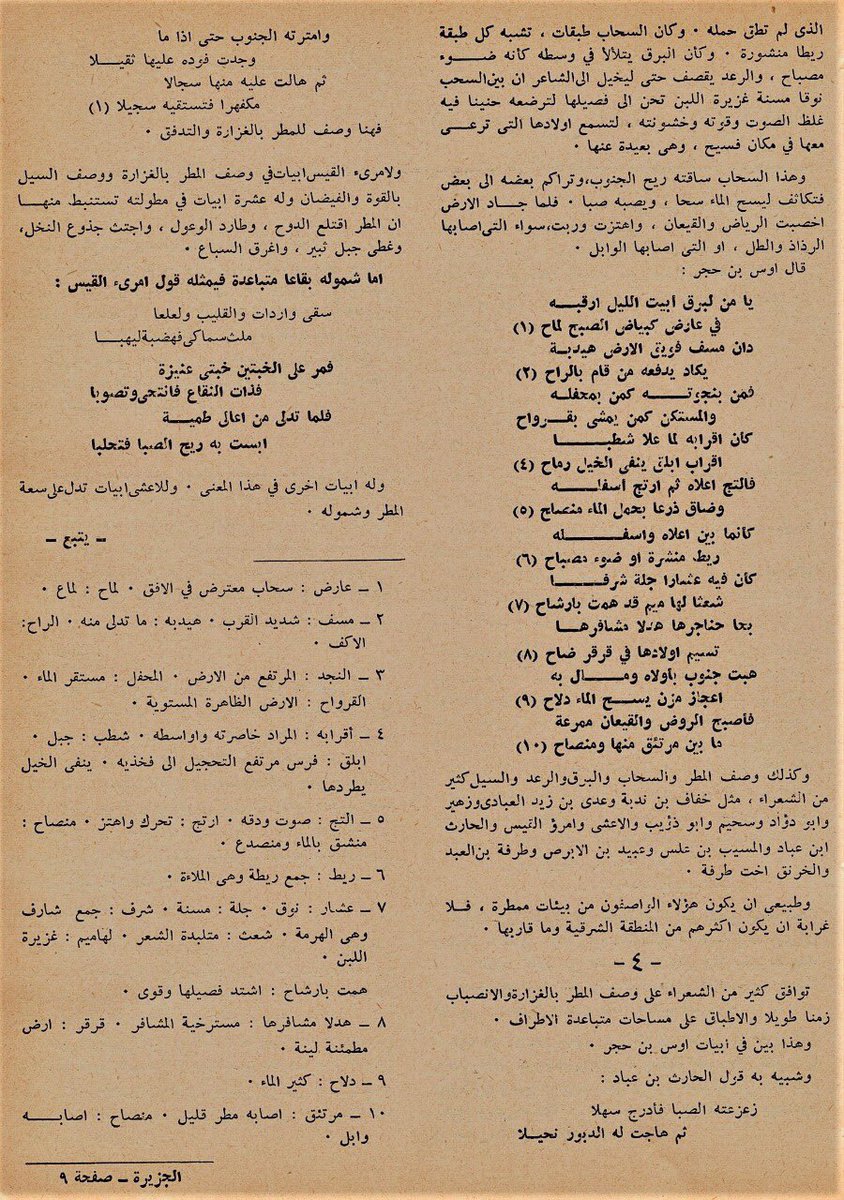 الذى لم تطق حمله ٠ وكان السحاب طبقات ، تشبه كل طبقة
ريطا منشورة ٠ وكأن البرق يتلألأ في وسطه كأنه ضـــوء
مصباح ، والرعد يقصف حتى ليخيل الى الشاعر ان بين السحب
نوقا مسنة غزيرة اللبن تحن الى فصيلها لترضعه حنينا فيه
غلظ الصوت وقوته وخشونته ، لتسمع اولادها التى ترعــى
معها في مكان فسيح ، وهى بعيدة عنها ٠
وهذا السحاب ساقته ريح الجنوب، وتراكم بعضه الى بعض
فتكاثف ليسح الماء سحا ، ويصبه صبا ٠ فلما جــاد الارض
اخصبت الرياض والقيعان ، واهتزت وربت، سواء التى اصابها
الرذاذ والطل ، او التى اصابها الوابل ٠
قال اوس بن حجر :
يا من لبرق ابيت الليل ارقبــه
في عارض كبياض الصبح لماح (١)
دان مسف فويق الارض هيدبــة
يكاد يدفعه من قام بالراح (٢)
فمن بنجوتــــه كمن بمحفلــه
والمستكن كمن يمشى بقــرواح
كان اقرابه لما علا شطبـــا
اقراب ابلق ينفى الخيل رماح (٤)
فالتج اعلاه ثم ارتج اسفلـــه
وضاق ذرعا بحمل الماء منصاح (٥)
كأنما بين اعلاه واسفــــله
ريط منشرة او ضوء مصباح (٦)
كأن فيه عشارا جلة شرفـــا
شعثا لهاميم قد همت بارشاح (٧)
بحا حناجرها هدلا مشافرهــا
تسيم اولادها في قرقر ضاح (٨)
هبت جنوب بأولاه ومـــال به
اعجاز مزن يســـح الماء دلاح (٩)
فأصبح الروض والقيعان ممرعة
ما بين مرتثق منها ومنصاح (١٠)
وكذلك وصف المطر والسحاب والبرق والرعد والسيل كثير
من الشعراء ، مثل خفاف بن ندبة وعدى بن زيد العبادى وزهير
وابو دؤاد وسحيم وابو ذؤيب والاعشى وامرؤ القيس والحارث
ابن عباد والمسيب بن علس وعبيد بن الابرص وطرفة بن العبد
والخرنق اخت طرفة ٠
وطبيعى ان يكون هؤلاء الواصفون من بيئات ممطرة ، فــلا
غرابة ان يكون اكثرهم من المنطقة الشرقية وما قاربها ٠
- ٤ -
توافق كثير من الشعراء على وصف المطر بالغزارة والانصباب
زمنا طويلا والاطباق على مساحات متباعدة الاطراف ٠
وهذا بين في ابيات اوس بن حجر ٠
وشبيه به قول الحارث بن عباد :
زعزعته الصبا فأدرج سهلا
ثم هاجت له الدبور نحيــلا
وامترته الجنوب حتى اذا ما
وجدت فوده عليها ثقيــلا
ثم هالت عليه منها سجالا
مكفهرا فتستقيه سجيلا (١)
فهنا وصف للمطر بالغزارة والتدفق ٠
ولامرىء القيس ابيات في وصف المطر بالغزارة ووصف السيل
بالقوة والفيضان وله عشرة ابيات في مطولته تستنبط منهــا
ان المطر اقتلع الدوح ، وطارد الوعول ، واجتث جذوع النخل،
وغطى جبل ثبير ، واغرق السباع ٠
اما شموله بقاعا متباعدة فيمثله قول امرىء القيس :
سقى واردات والقليب ولعلعا
ملث سماكى فهضبة ليهبــا
فمر على الخبتين خبتى عنيزة
فذات النقاع فانتحى وتصوبا
فلما تدلى من اعالى طميـــة
ابست به ريح الصبا فتحلبا
وله ابيات اخرى في هذا المعنى ٠ وللاعشى ابيات تدل على سعة
المطر وشموله ٠
ــ يتبع ــ
١ ــ عارض : سحاب معترض في الافق ٠ لماح : لماع ٠
٢ ــ مسف : شديد القرب ٠ هيدبه : ما تدلى منه ٠ الراح:
الاكف ٠
٣ ــ النجد : المرتفع من الارض ٠ المحفل : مستقر الماء ٠
القرواح : الارض الظاهرة المستوية ٠
٤ ــ أقرابه : المراد خاصرته واواسطه ٠ شطب : جبل ٠
ابلق : فرس مرتفع التحجيل الى فخذيه ٠ ينفى الخيل
يطردها ٠
٥ ــ التج : صوت ودقه ٠ ارتج : تحرك واهتز ٠ منصاح :
منشق بالماء ومنصدع ٠
٦ ــ ريط : جمع ريطة وهى الملاءة ٠
٧ ــ عشار : نوق ٠ جلة : مسنة ٠ شرف : جمع شارف
وهى الهرمة ٠ شعث : متلبدة الشعر ٠ لهاميم : غزيرة
اللبن ٠
همت بارشاح : اشتد فصيلها وقوى ٠
٨ ــ هدلا مشافرها : مسترخية المشافر ٠ قرقر : ارض
مطمئنة لينة ٠
٩ ــ دلاح : كثير الماء ٠
١٠ ــ مرتثق : اصابه مطر قليل ٠ منصاح : اصابــه
وابل ٠
الجزيرة ــ صفحة ٩